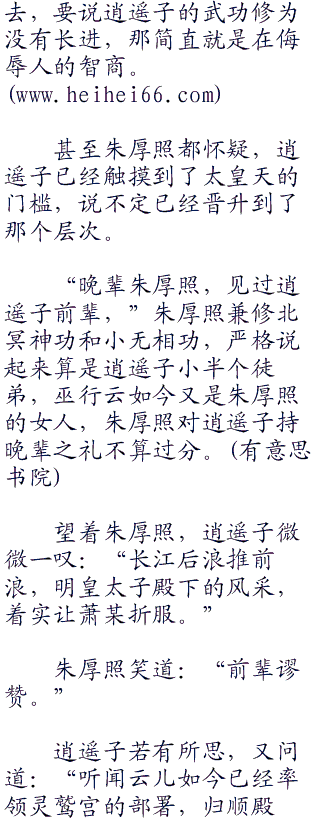 去，要说逍遥子的武功修为
没有长进，那简直就是在侮
辱人的智商。
(www.heihei66.com)
甚至朱厚照都怀疑，逍
遥子已经触摸到了太皇天的
门槛，说不定已经晋升到了
那个层次。
“晚辈朱厚照，见过逍
遥子前辈，”朱厚照兼修北
冥神功和小无相功，严格说
起来算是逍遥子小半个徒
弟，巫行云如今又是朱厚照
的女人，朱厚照对逍遥子持
晚辈之礼不算过分。(有意思
书院)
望着朱厚照，逍遥子微
微一叹：“长江后浪推前
浪，明皇太子殿下的风采，
着实让萧某折服。”
朱厚照笑道：“前辈谬
赞。”
逍遥子若有所思，又问
道：“听闻云儿如今已经率
领灵鹫宫的部署，归顺殿